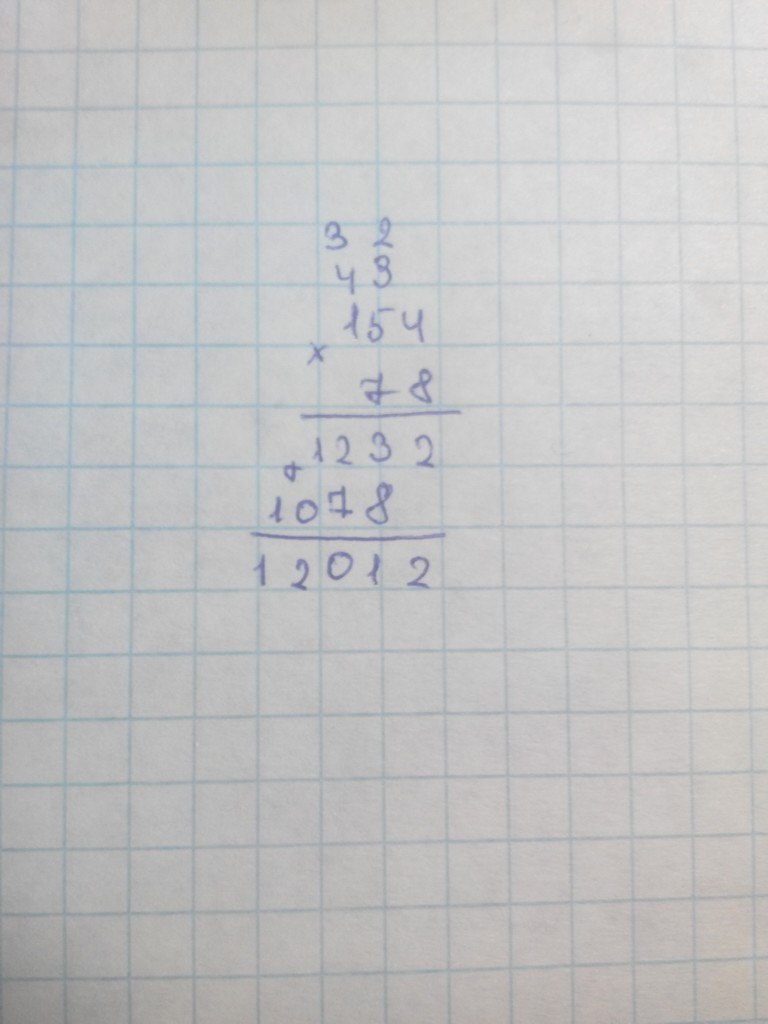 3 2
4 3
154
×
78
1232
+
1078
12012